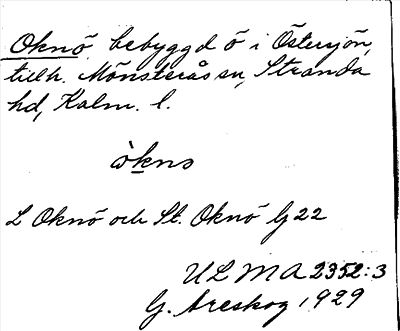 Oknö bebyggd ö i Östersjön,
tillh. Mönsterås sn, Stranda
hd, Kalm. l.
òkno
L Oknö och St. Oknö G 22
ULMA 2352:3
G. Areskog 1929